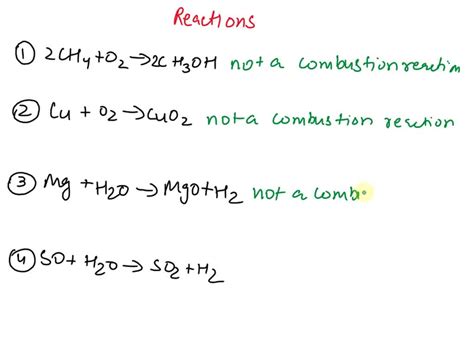 Reactions
① 2CH4+O2→2CH3OH not a combustion reaction
② Cu + O2→CuO2 not a combustion reaction
③ Mg +H2O→MgO+H2 not a comb
④ SO+ H2O→SO2+H2